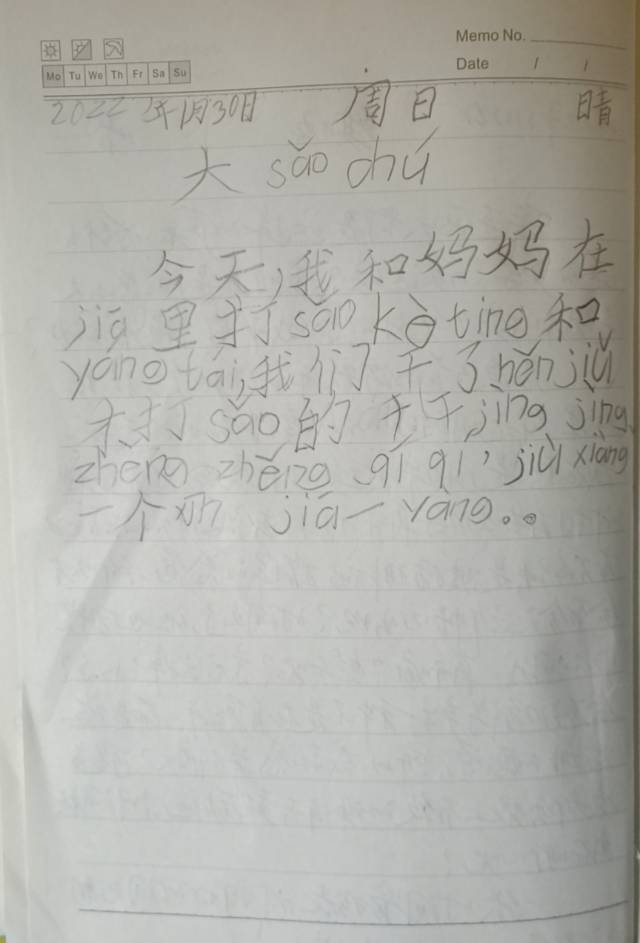 Memo No.
Mo Tu We Th Fr Sa Su
Date / /
2022年1月30日 周日 晴
大 sǎo chú
今天,我和妈妈在
jiā 里打sǎo kè ting 和
yáng tái,我们干了hěn jiǔ
才打 sǎo 的干干jìng jìng、
zhěng zhěng qí qí,jiù xiàng
一个 xīn jiā 一 yàng。。